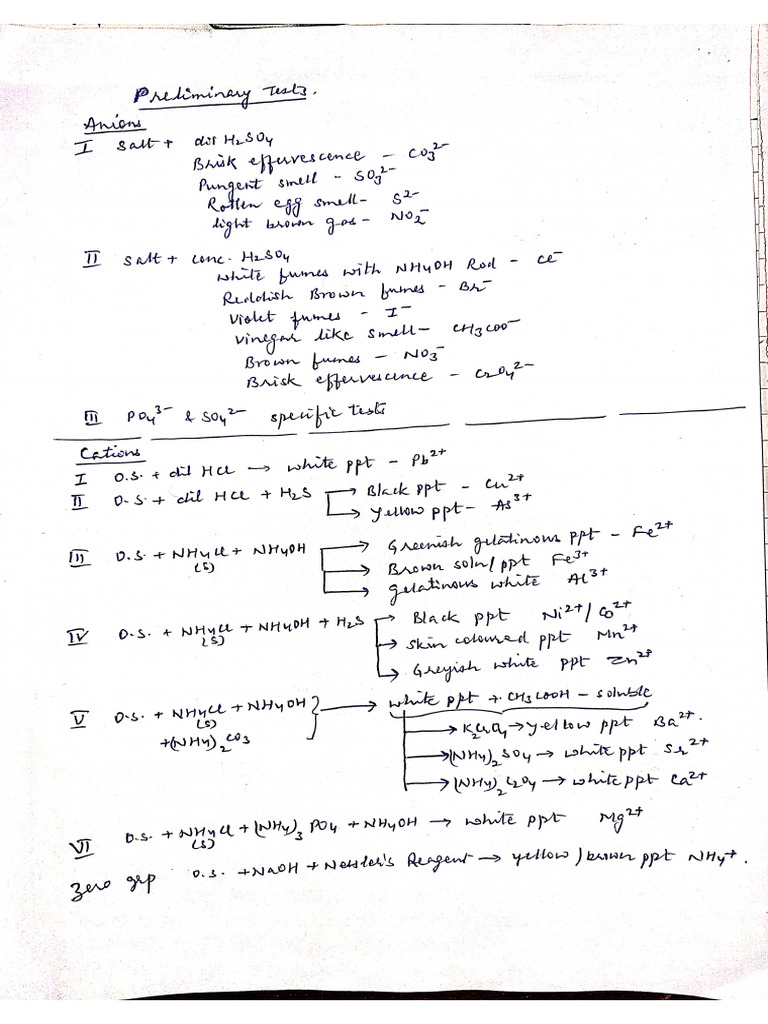 Preliminary Tests.
Anions
I salt + dil H2SO4
Brisk effurvescence – CO3^2–
Pungent smell – SO3^2–
Rotten egg smell – S^2–
light brown gas – NO2^–
II salt + conc. H2SO4
white fumes with NH4OH Rod – Cl^–
Reddish Brown fumes – Br^–
Violet fumes – I^–
Vinegar like smell – CH3COO^–
Brown fumes – NO3^–
Brisk effervescence – C2O4^2–
III PO4^3– & SO4^2– specific tests
Cations
I O.S. + dil HCl → white ppt – Pb^2+
II O.S. + dil HCl + H2S → Black ppt – Cu^2+
→ Yellow ppt – As^3+
III O.S. + NH4Cl (s) + NH4OH → Greenish gelatinous ppt – Fe^2+
→ Brown soln/ppt Fe^3+
→ gelatinous white Al^3+
IV O.S. + NH4Cl (s) + NH4OH + H2S → Black ppt Ni^2+/Co^2+
→ Skin coloured ppt Mn^2+
→ Greyish white ppt Zn^2+
V O.S. + NH4Cl (s) + NH4OH + (NH4)2CO3 } → white ppt + CH3COOH – soluble
→ K2CrO4 → yellow ppt Ba^2+.
→ (NH4)2SO4 → white ppt Sr^2+
→ (NH4)2C2O4 → white ppt Ca^2+
VI O.S. + NH4Cl (s) + (NH4)3PO4 + NH4OH → white ppt Mg^2+
Zero grp O.S. + NaOH + Nessler's Reagent → yellow/brown ppt NH4^+.